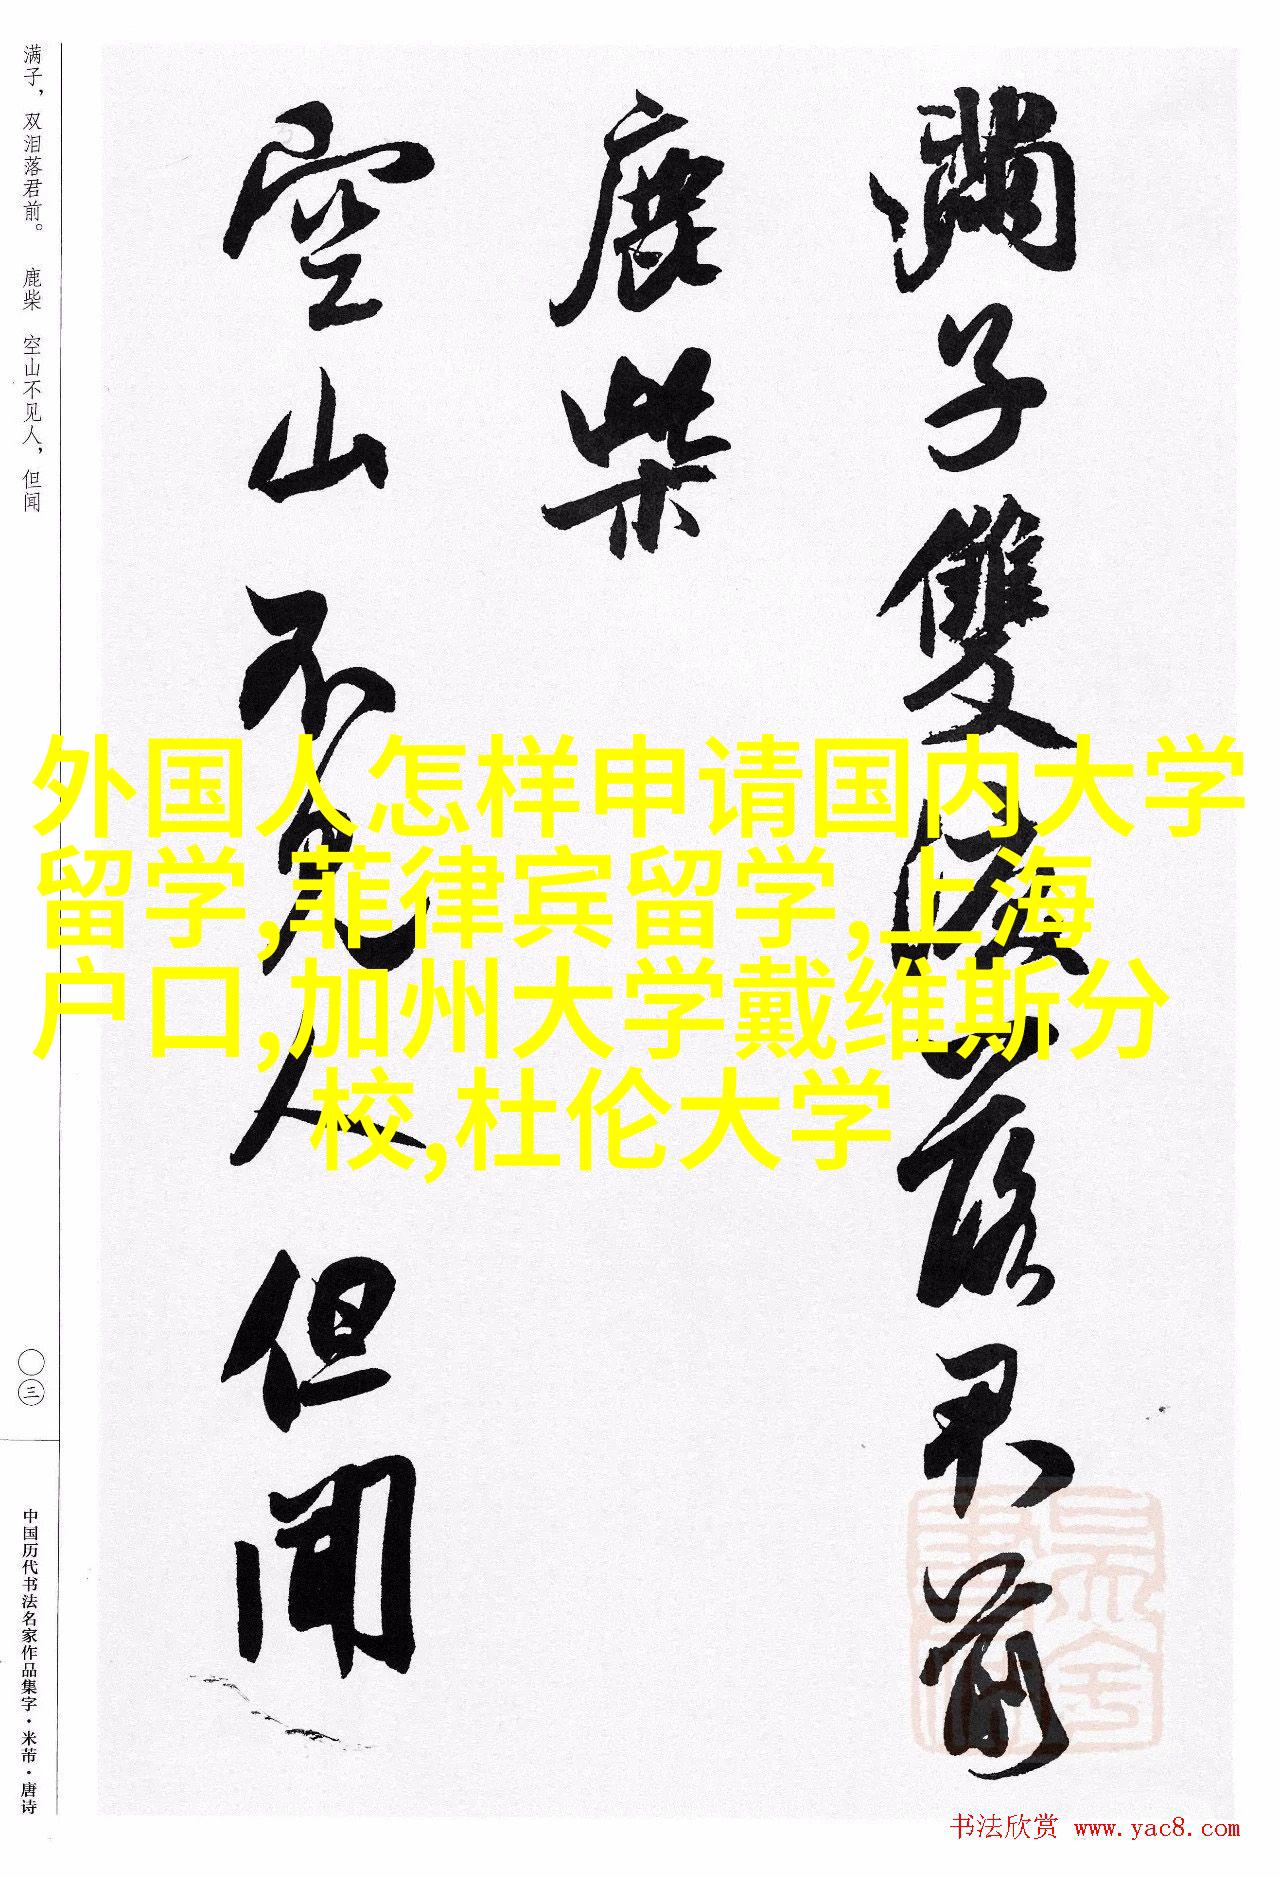 满子，双泪落君前。　鹿柴　空山不见人，但闻
满子雙淚落君前
鹿柴
空山不見人但聞
外国人怎样申请国内大学
留学,菲律宾留学,上海
户口,加州大学戴维斯分
校,杜伦大学
〇三
中国历代书法名家作品集字·米芾·唐诗
书法欣赏 www.yac8.com